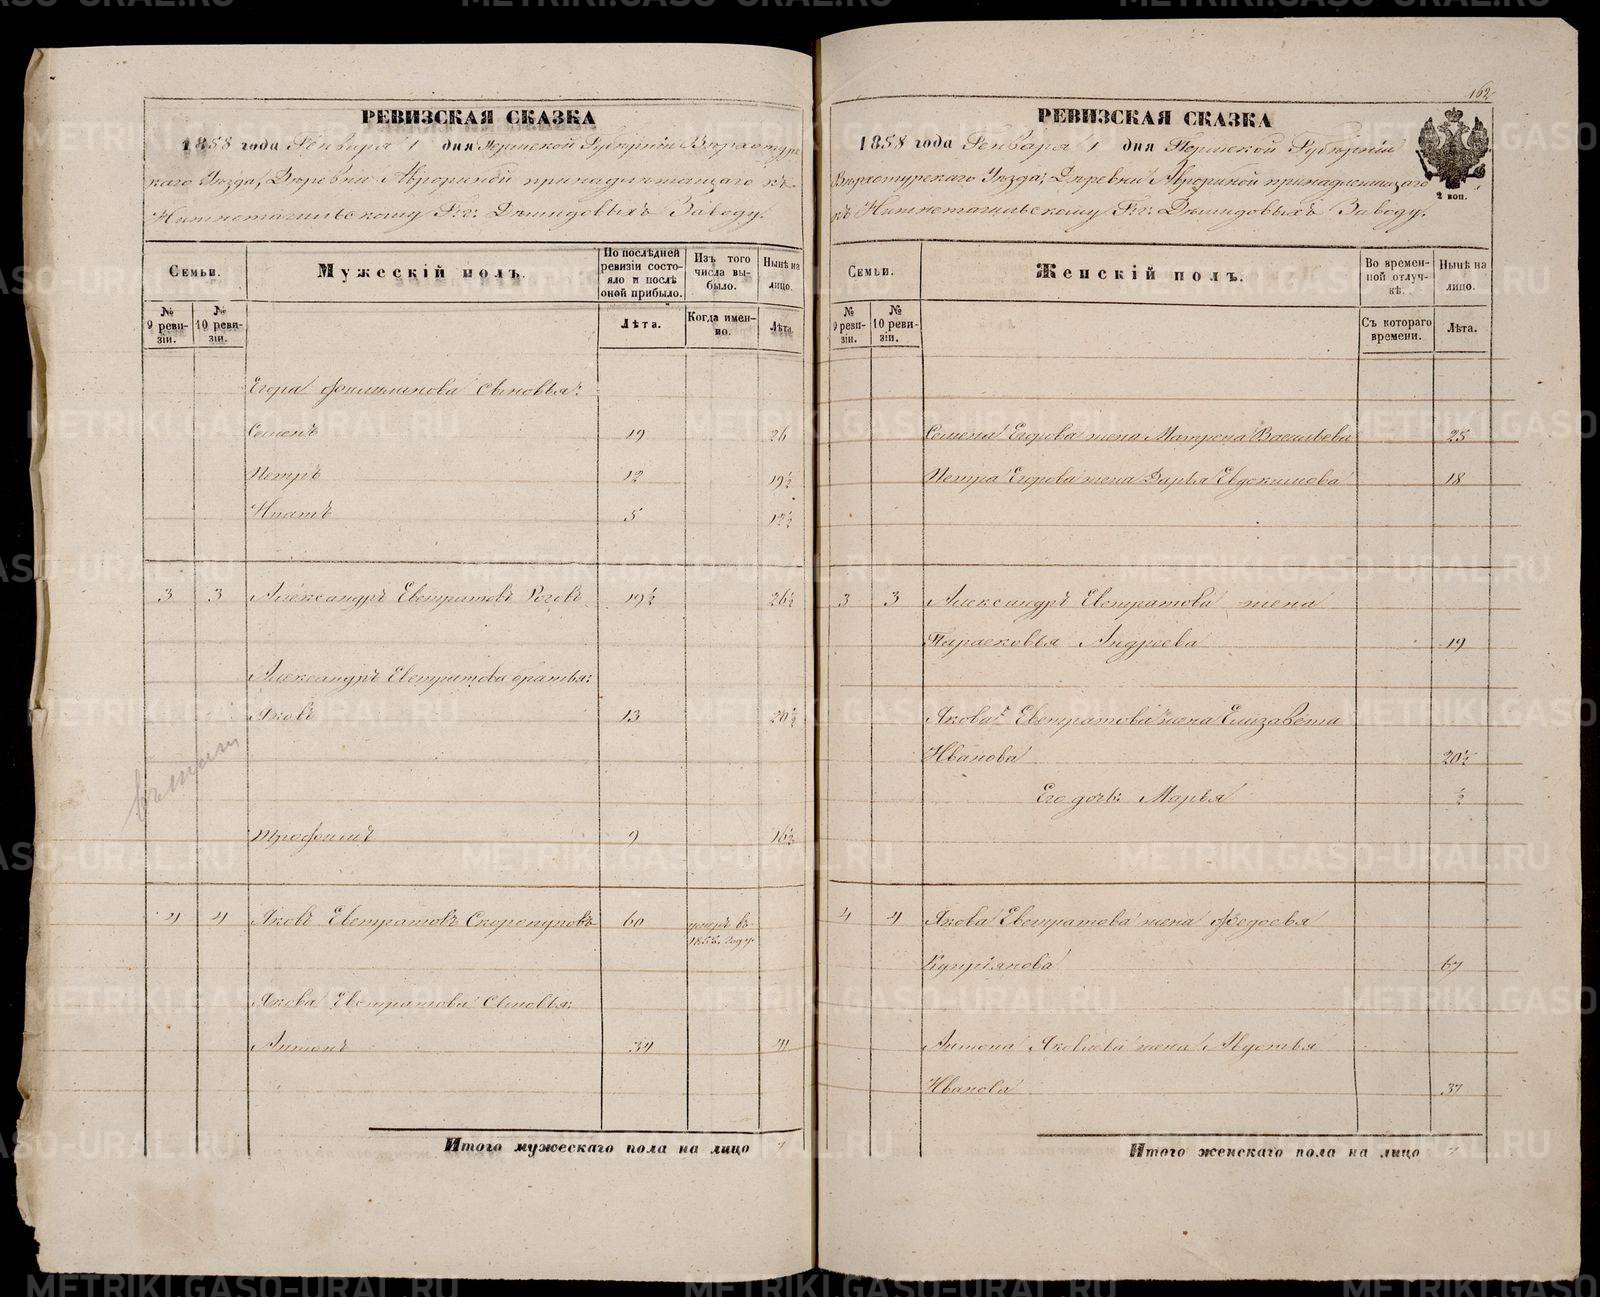 РЕВИЗСКАЯ СКАЗКА
1858 года Генваря 1 дня Пермской Губерніи Верхотурс
каго Уѣзда, Деревни Аврориной принадлежащаго къ
Нижнетагильскому Г.г: Демидовыхъ Заводу.
Семьи.
Мужескій полъ.
По послѣдней ревизіи состояло и послѣ оной прибыло.
Изъ того числа выбыло.
Нынѣ на лицо.
№ 9 ревизіи.
№ 10 ревизіи.
Лѣта.
Когда именно.
Лѣта.
Егора Филимонова Сыновья:
Семенъ 19 26
Петръ 12 19½
Ипатъ 5 12½
3 3 Александръ Евстратовъ Роговъ 19½ 26½
Александръ Евстратова братья:
Яковъ 13 20½
Трофимъ 9 16½
4 4 Яковъ Евстратовъ Скорепуповъ 60 умеръ въ
1855. году
Якова Евстратова Сыновья:
Антонъ 34 41
Итого мужескаго пола на лицо 7
162
РЕВИЗСКАЯ СКАЗКА
1858 года Генваря 1 дня Пермской Губерніи
Верхотурскаго Уѣзда; Деревни Аврориной принадлежащаго
къ Нижнетагильскому Г.г: Демидовыхъ Заводу.
2 коп.
Семьи.
Женскій полъ.
Во временной отлучкѣ.
Нынѣ на лицо.
№ 9 ревизіи.
№ 10 ревизіи.
Съ котораго времени.
Лѣта.
Семена Егорова жена Матрена Васильева 25
Петра Егорова жена Дарья Евдокимова 18
3 3 Александръ Евстратова жена
Парасковья Андреева 19
Якова Евстратова жена Елизавета
Иванова 20½
Его дочь: Марья ½
4 4 Якова Евстратова жена Федосья
Купріянова 67
Антона Яковлева жена Авдотья
Иванова 37
Итого женскаго пола на лицо 7
METRIKI.GASO-URAL.RU